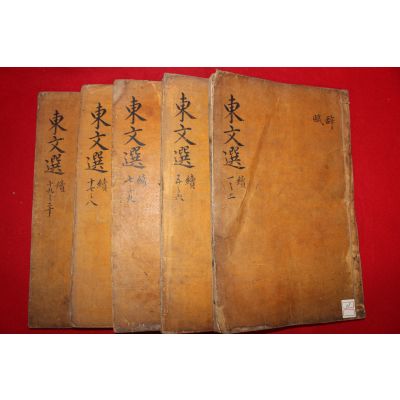 辞
賦
東文選
續
一之二
東文選
續
五之六
東文選
續
七之九
東文選
續
十七之八
東文選
續
十九之二十